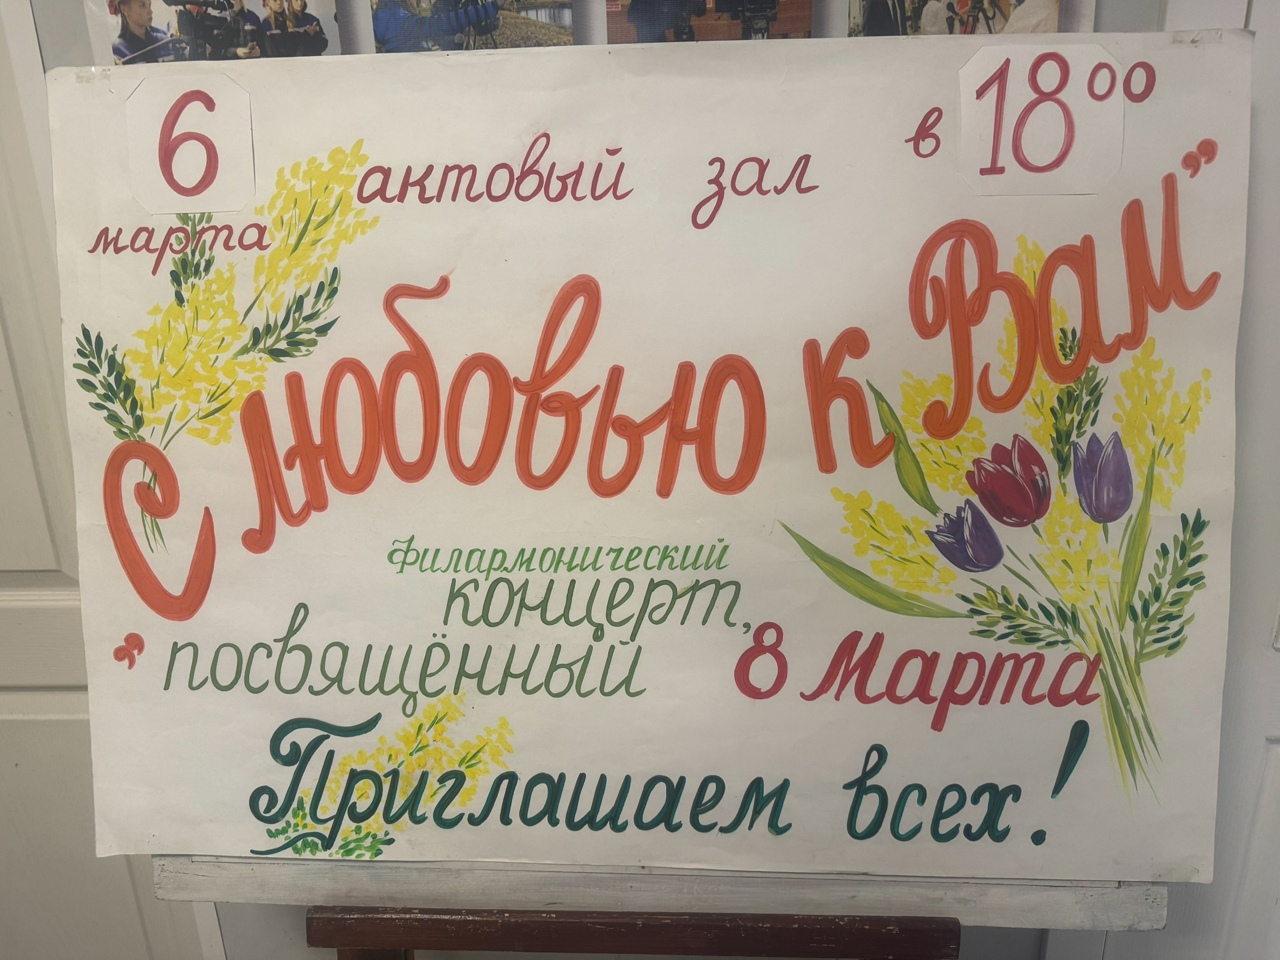 6 марта актовый зал в 18⁰⁰
„С любовью к Вам”
Филармонический
концерт,
посвящённый 8 Марта
Приглашаем всех!